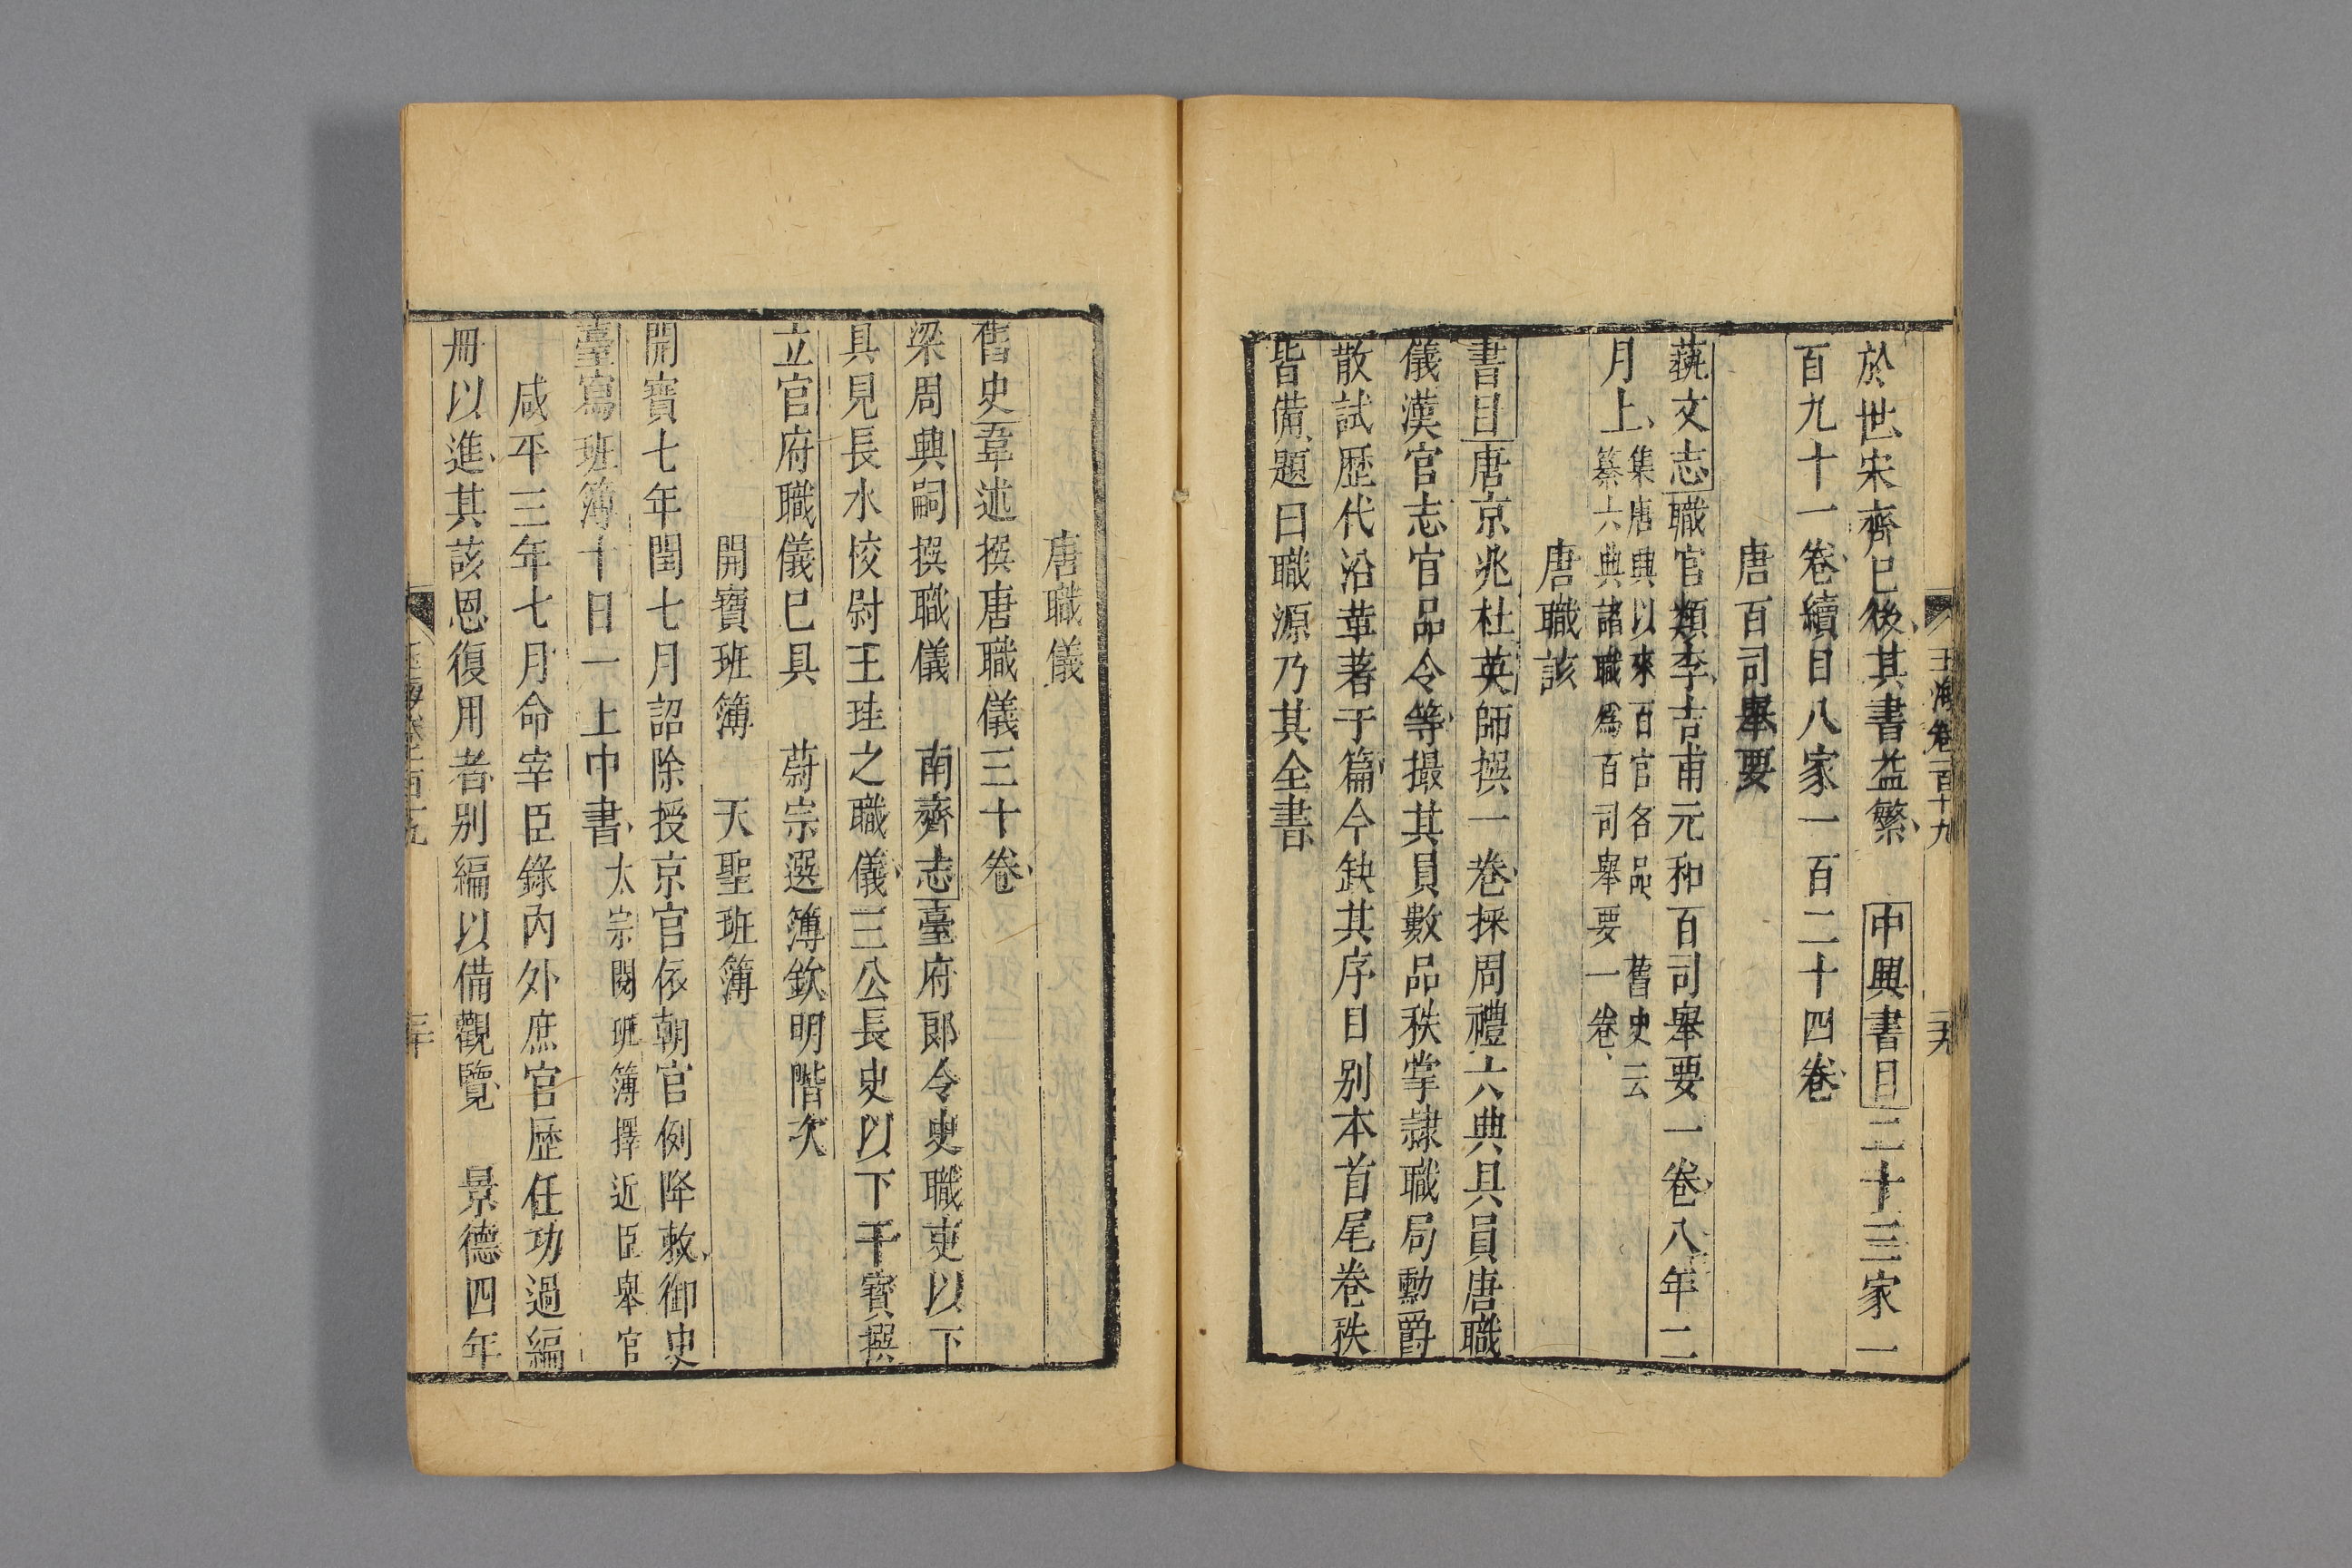 玉海卷一百十九
二九
於世宋齊已後其書益繁 中興書目二十三家一
百九十一卷續目八家一百二十四卷
唐百司舉要
藝文志職官類李吉甫元和百司舉要一卷八年二
月上集唐典以來百官各品 舊史云
纂六典諸職爲百司舉要一卷
唐職該
書目唐京兆杜英師撰一卷採周禮六典具員唐職
儀漢官志官品令等撮其員數品秩掌隷職局勳爵
散試歷代沿革著于篇今缺其序目别本首尾卷秩
皆備題曰職源乃其全書
唐職儀
舊史韋述撰唐職儀三十卷
梁周興嗣撰職儀 南齊志臺府郎令史職吏以下
具見長水校尉王珪之職儀三公長史以下干寶撰
立官府職儀已具 蔚宗選簿欽明階次
開寶班簿 天聖班簿
開寶七年閏七月詔除授京官依朝官例降敕御史
臺寫班簿十日一上中書太宗閱班簿擇近臣舉官
咸平三年七月命宰臣錄内外庶官歷任功過編
冊以進其該恩復用者别編以備觀覽 景德四年
三十